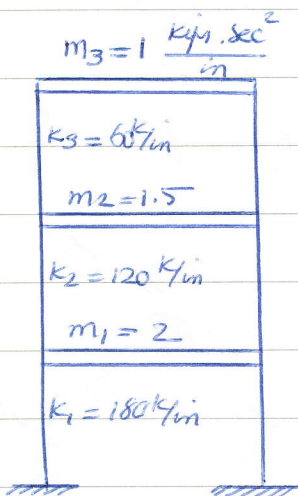 m₃ = 1 kip.sec²/in
k₃ = 60 k/in
m₂ = 1.5
k₂ = 120 k/in
m₁ = 2
k₁ = 180 k/in